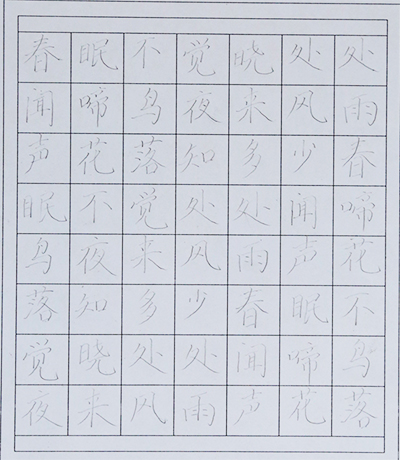 春眠不觉晓处处
闻啼鸟夜来风雨
声花落知多少春
眠不觉处处闻啼
鸟夜来风雨声花
落知多少春眠不
觉晓处处闻啼鸟
夜来风雨声花落